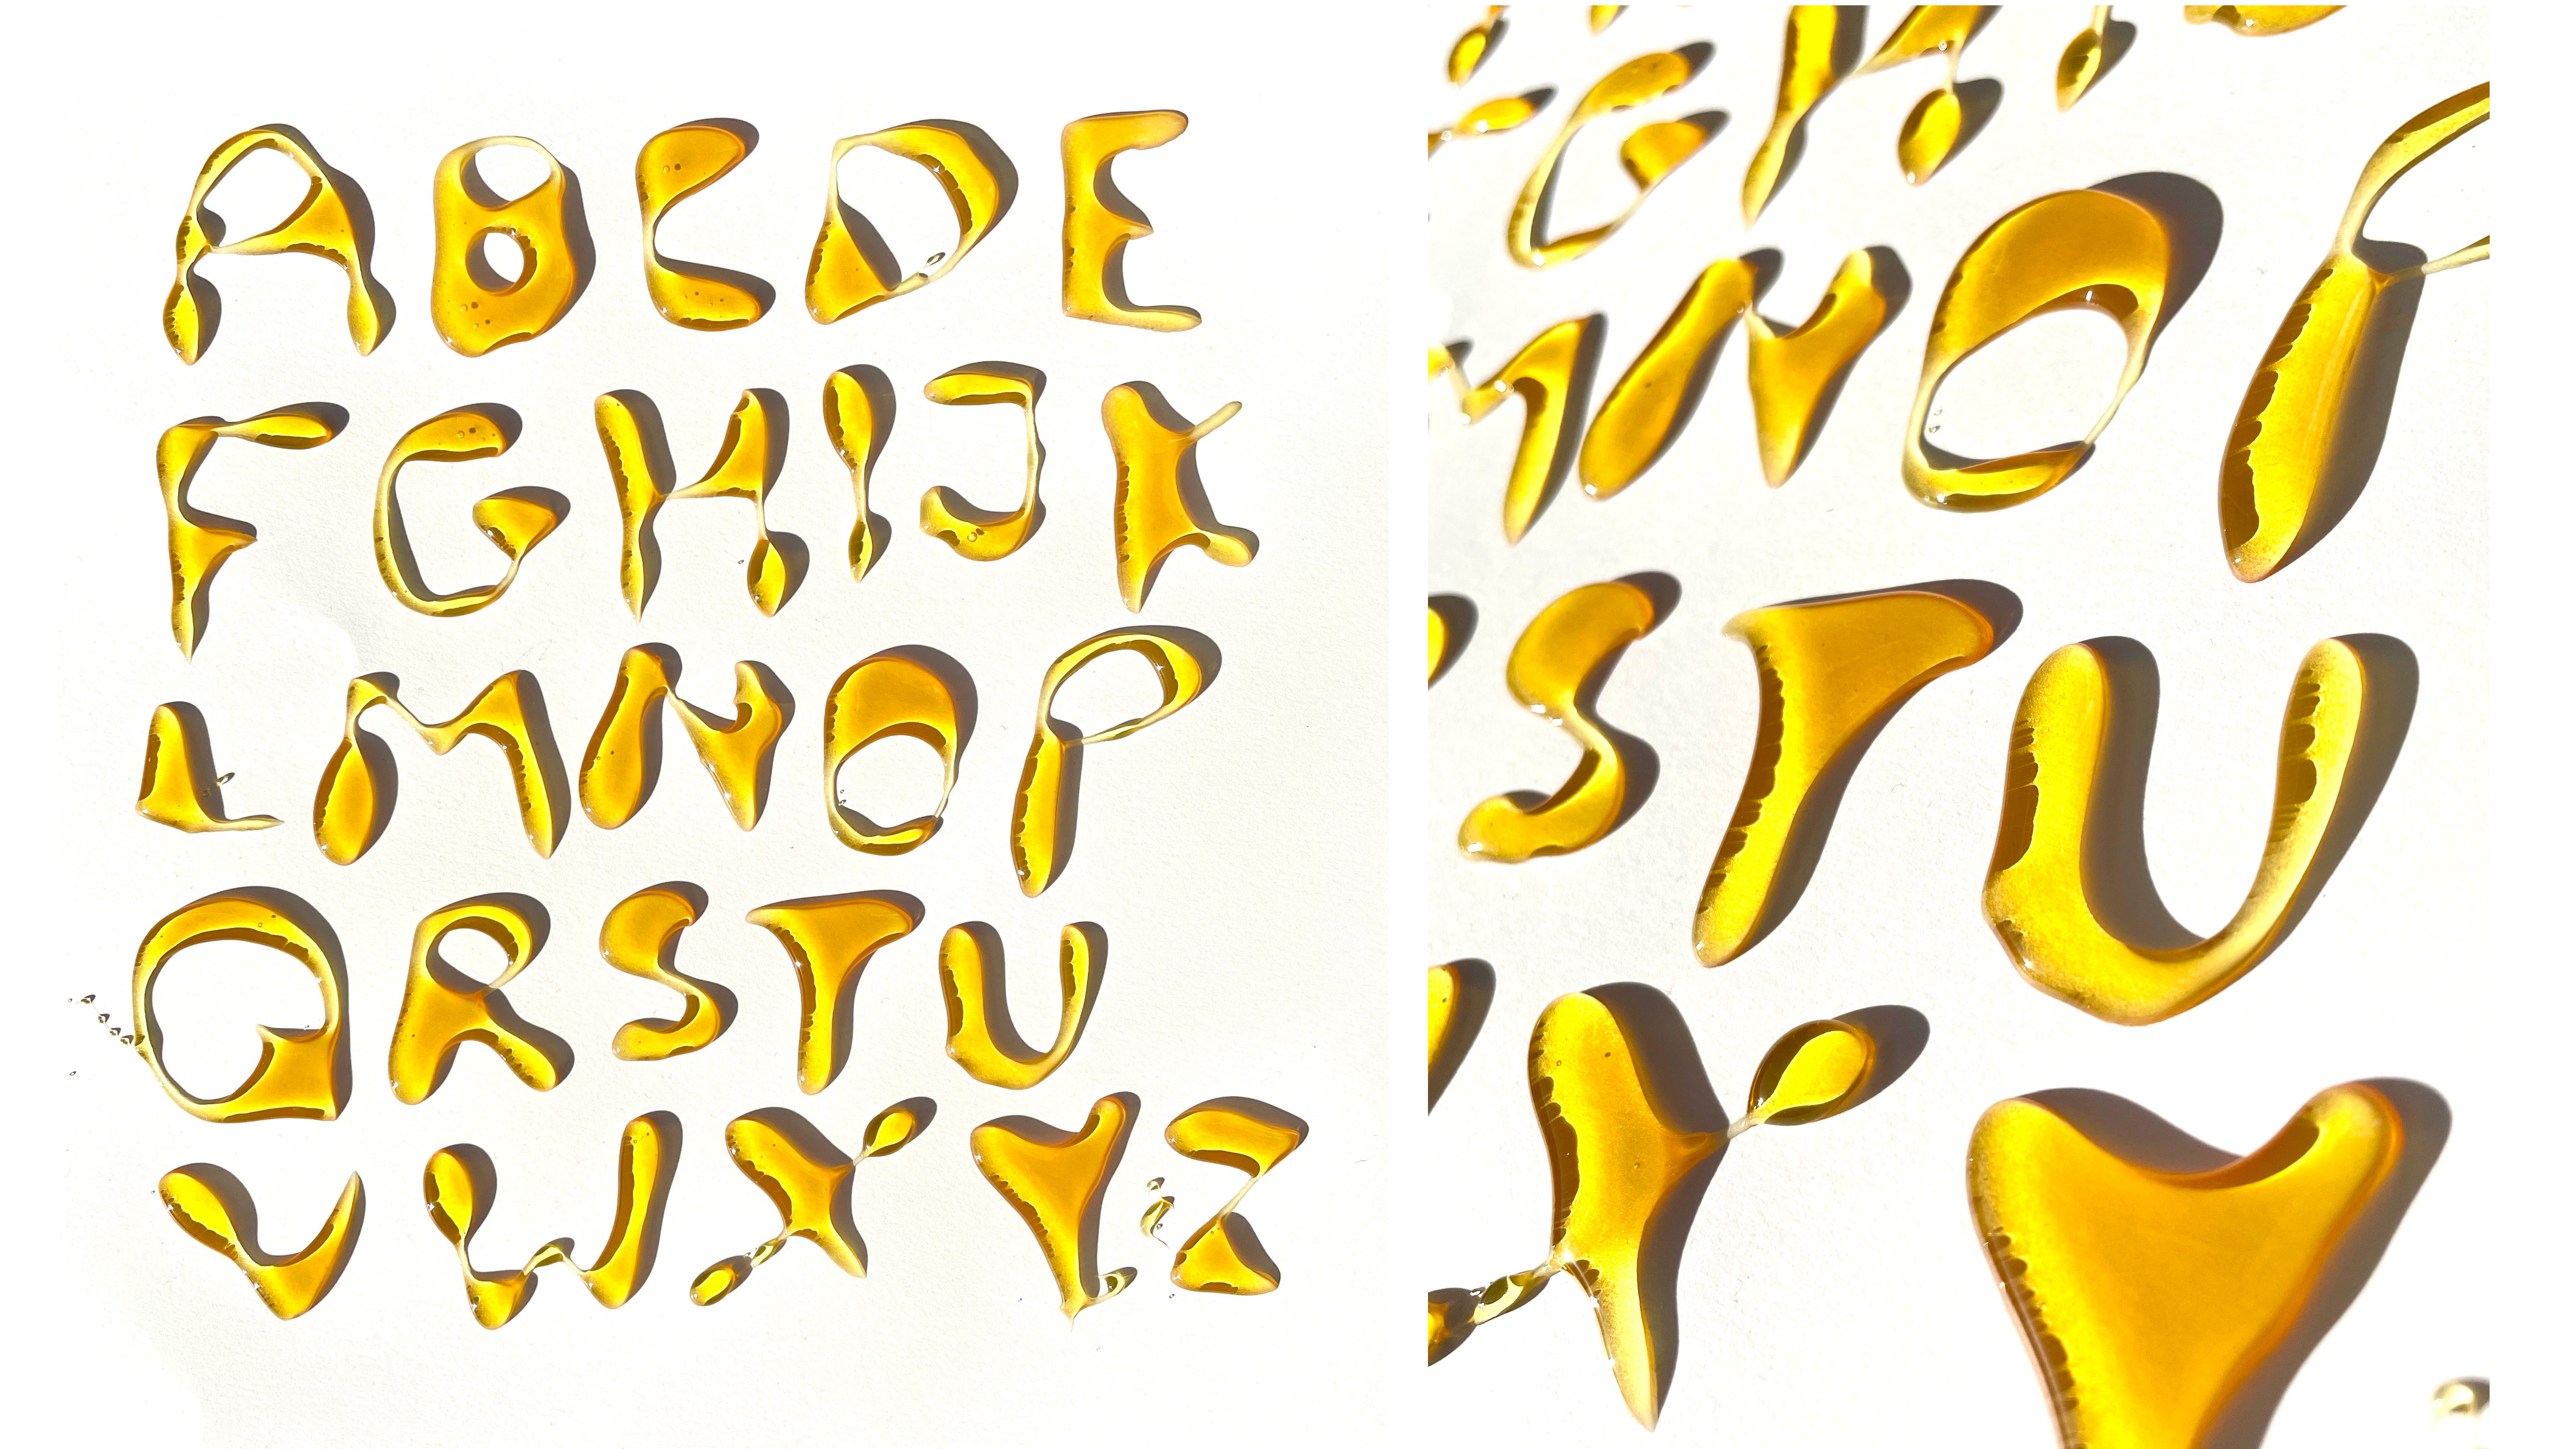 ABCDE
FGHIJK
LMNOP
QRSTU
VWXYZ
GH
MNOP
STU
XY